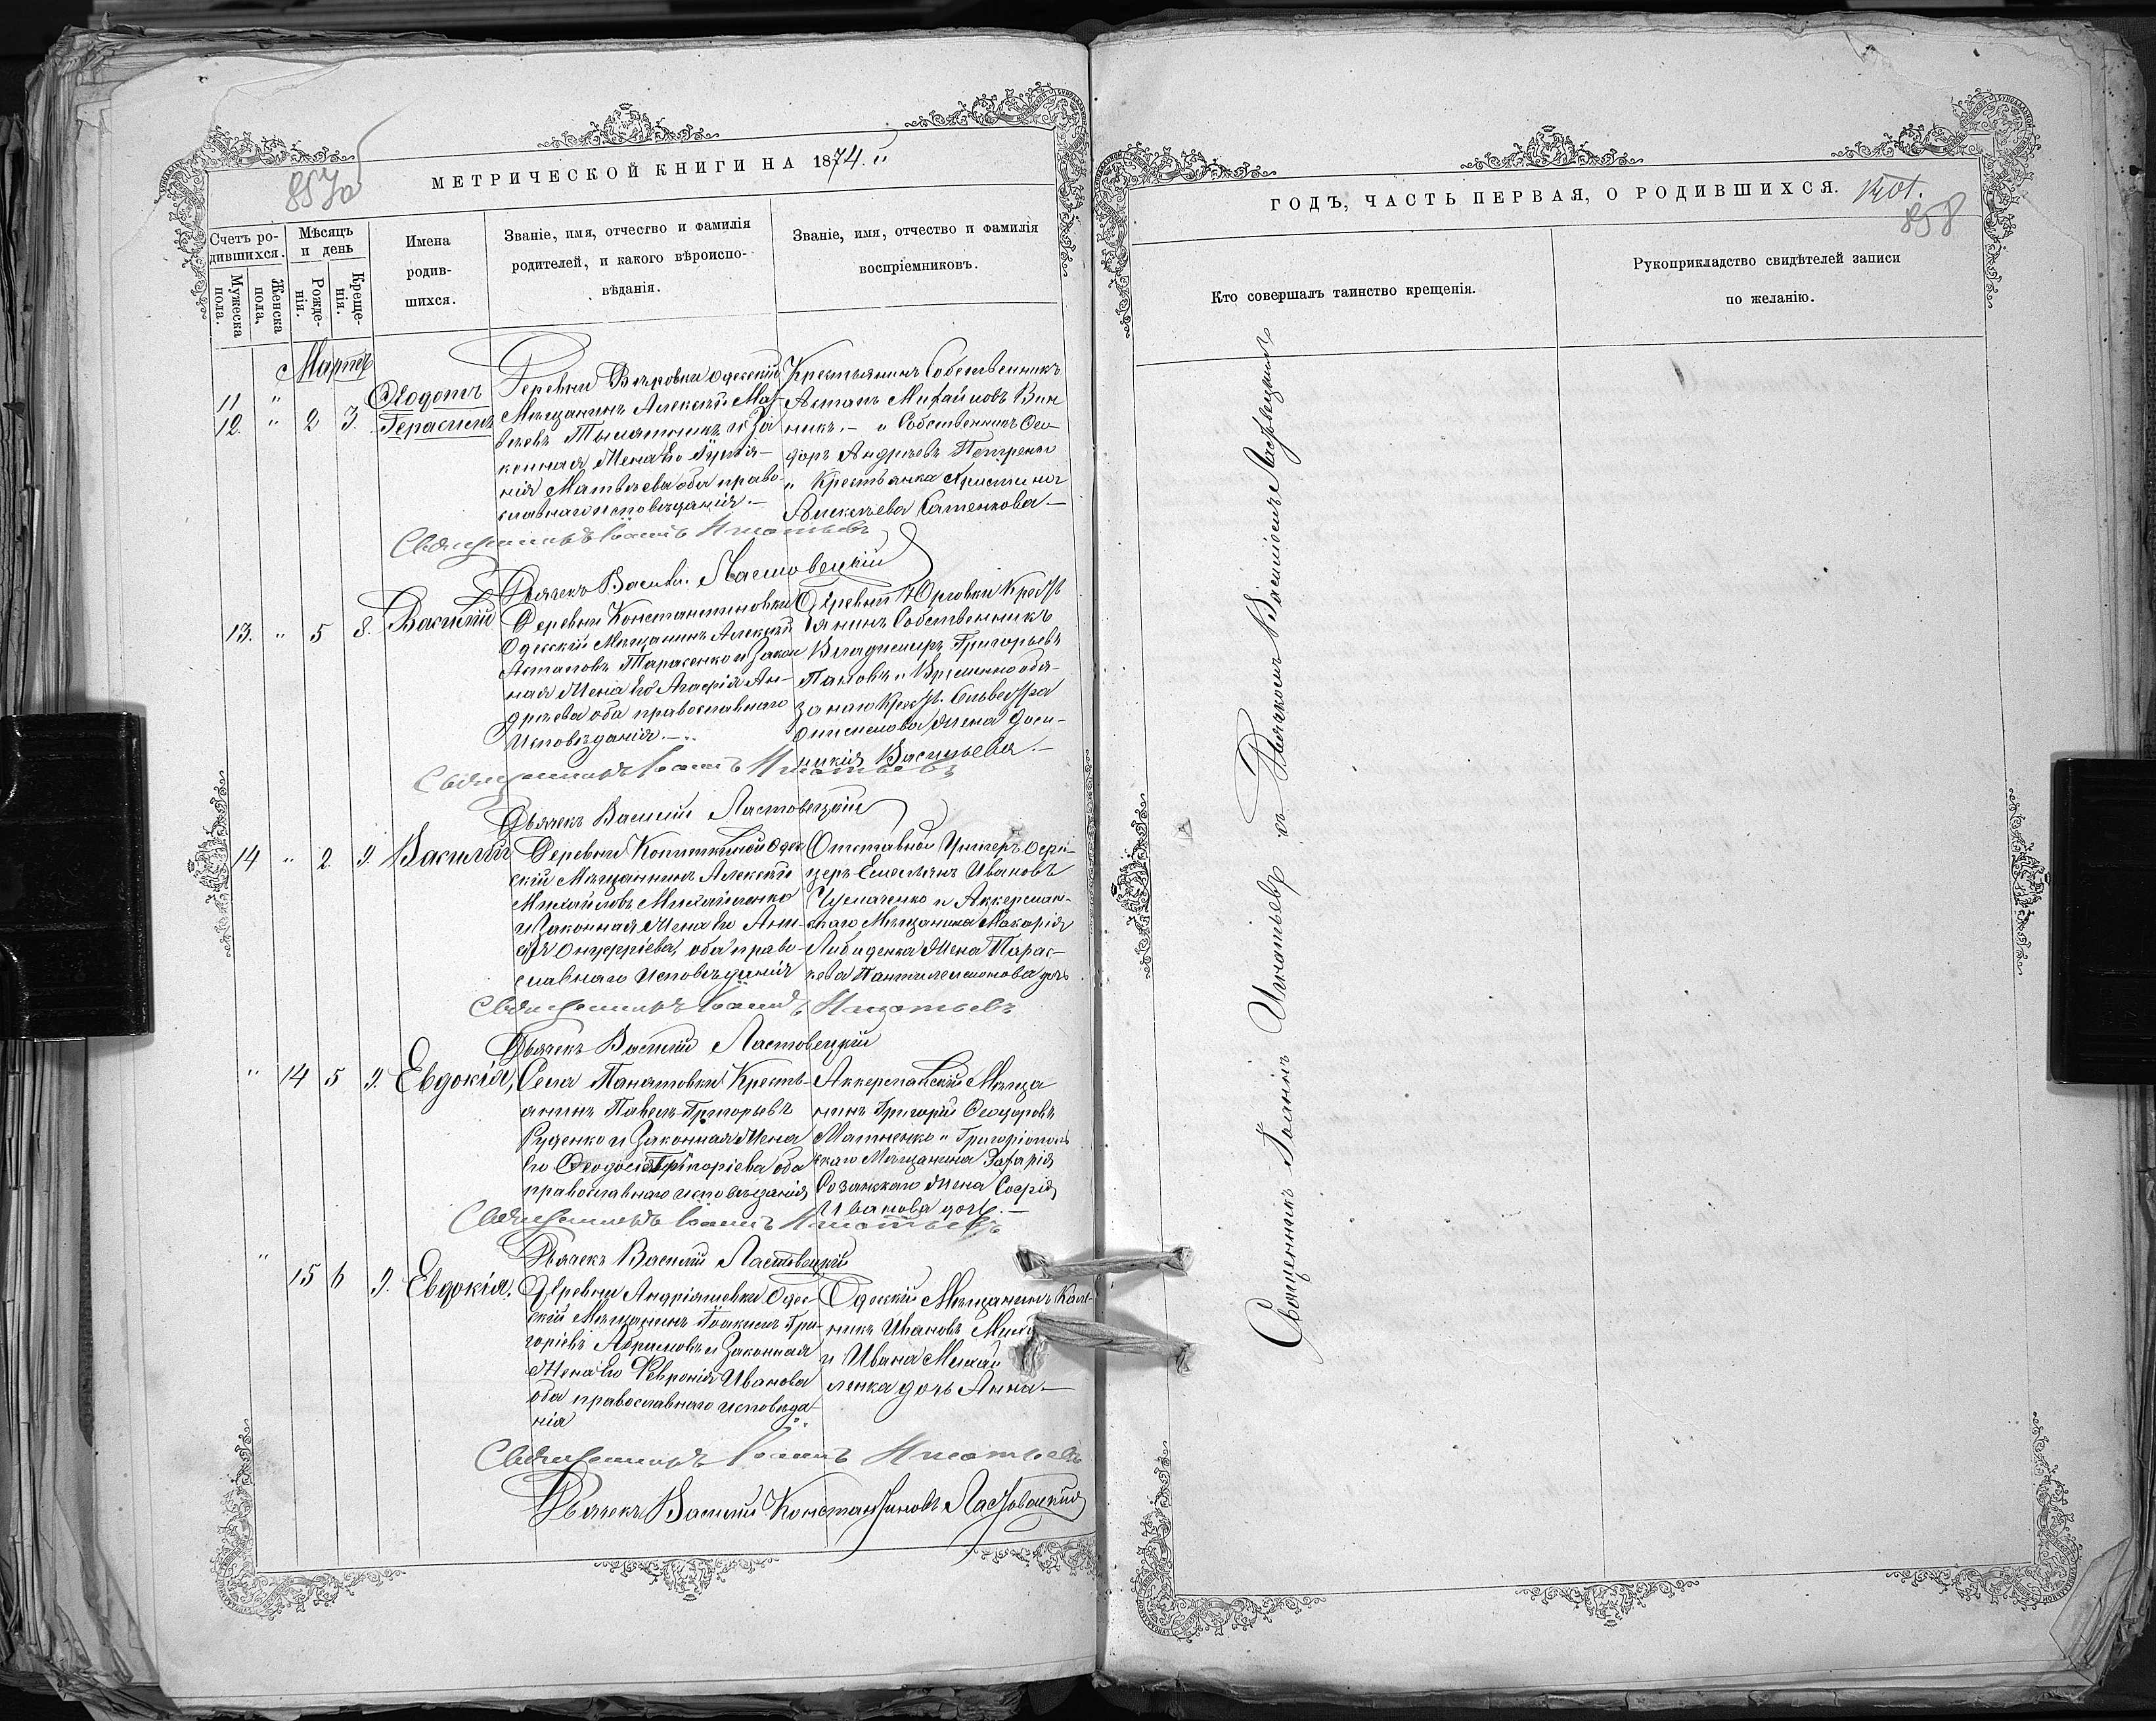 МЕТРИЧЕСКОЙ КНИГИ НА 1874.
857об
Счетъ ро-
дившихся.
Мужеска пола.
Женска пола.
Мѣсяцъ
и день
Рожде-
нія.
Креще-
нія.
Имена
родив-
шихся.
Званіе, имя, отчество и фамилія
родителей, и какого вѣроиспо-
вѣданія.
Званіе, имя, отчество и фамилія
воспріемниковъ.
Мартъ
11 "
12. " 2 3.
Ѳеодотъ
Герасимъ
Деревни Одесскій
Мѣщанинъ Алексѣй Мат-
вѣевъ и За
конная Жена Его
нія Матвѣева оба право-
славнаго исповѣданія.—
Крестьянинъ Собственникъ
Астапъ Михайловъ Вин
никъ.— " Собственникъ Ѳео-
доръ Андреевъ Петренко
" Крестьянка Христина
Алексѣева
Священникъ Іоаннъ Игнатьевъ
Дьячекъ Васил. Ластовецкій
13. " 5 8. Василій
Деревни Константиновки
Одесскій Мѣщанинъ Алексѣй
Астаповъ Тарасенко и Закон
ная Жена Его Агафія Ан-
дреева оба православнаго
Исповѣданія.—
Деревни Юрловки Крест
янинъ Собственникъ
Владимиръ Григорьевъ
Паповъ и Временнообя-
заннаго Крест. Сильвестра
Жена Доми-
никія Васильева.—
Священникъ Іоаннъ Игнатьевъ
Дьячекъ Василій Ластовецкій
14 " 2 9. Василій
Деревни Одес
скій Мѣщанинъ Алексѣй
Михайловъ Михайленко
и Законная Жена Его
Онуфріева, оба право-
славнаго Исповѣданія
Отставной Унтеръ Офи-
церъ Емельянъ Ивановъ
и Аккерман-
скаго Мѣщанина Макарія
Жена Парас-
кева Пантилеимонова дочь
Священникъ Іоаннъ Игнатьевъ
Дьячекъ Василій Ластовецкій
" 14 5 9. Евдокія,
Села Крестъ-
янинъ Павелъ Григорьевъ
Руденко и Законная Жена
Его Ѳеодосія Григоріева оба
православнаго исповѣданія
Аккерманскій Мѣща
нинъ Григорій Ѳеодоровъ
Матненко " Григоріополь
скаго Мѣщанина Захарія
Жена Софія
Иванова дочь.—
Священникъ Іоаннъ Игнатьевъ
Дьячекъ Василій Ластовецкій
" 15 6 9. Евдокія.
Деревни Андріяшевки Одес
скій Мѣщанинъ Іоакимъ Гри-
горіевъ Абрамовъ и Законная
Жена Его Февронія Иванова
оба православнаго исповѣда-
нія
Одесскій Мѣщанинъ
никъ Ивановъ
и Ивана Михай
ленка дочь Анна—
Священникъ Іоаннъ Игнатьевъ
Дьячекъ Василій Константиновъ Ластовецкій
ГОДЪ, ЧАСТЬ ПЕРВАЯ, О РОДИВШИХСЯ.
858
Кто совершалъ таинство крещенія.
Рукоприкладство свидѣтелей записи
по желанію.
Священникъ Іоаннъ Игнатьевъ съ Дьячкомъ Василіемъ Ластовецкимъ